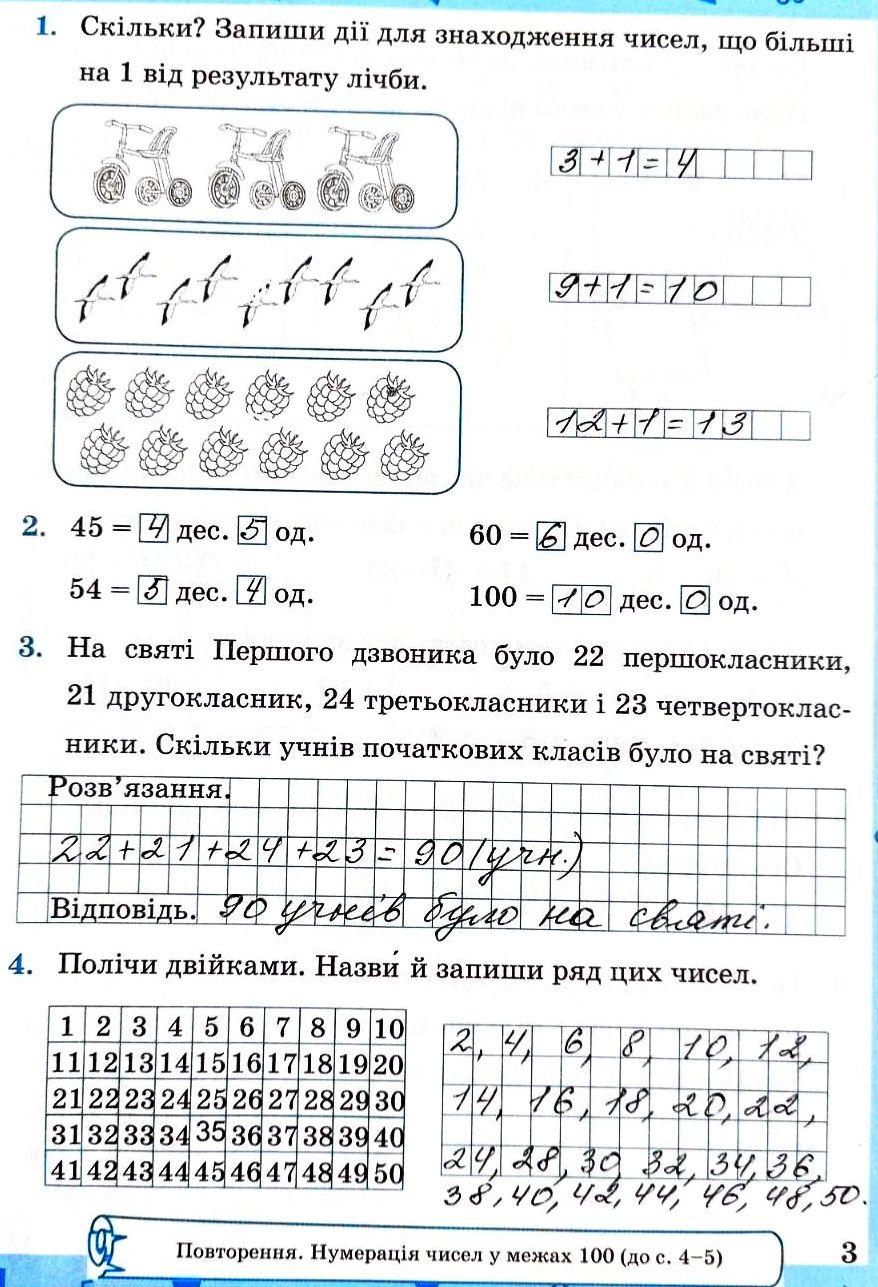 1. Скільки? Запиши дії для знаходження чисел, що більші
на 1 від результату лічби.
3+1=4
9+1=10
12+1=13
2. 45 = 4 дес. 5 од. 60 = 6 дес. 0 од.
54 = 5 дес. 4 од. 100 = 10 дес. 0 од.
3. На святі Першого дзвоника було 22 першокласники,
21 другокласник, 24 третьокласники і 23 четвертоклас-
ники. Скільки учнів початкових класів було на святі?
Розв’язання.
22+21+24+23=90(учн.)
Відповідь. 90 учнів було на святі.
4. Полічи двійками. Назви́ й запиши ряд цих чисел.
1 2 3 4 5 6 7 8 9 10
11 12 13 14 15 16 17 18 19 20
21 22 23 24 25 26 27 28 29 30
31 32 33 34 35 36 37 38 39 40
41 42 43 44 45 46 47 48 49 50
2, 4, 6, 8, 10, 12,
14, 16, 18, 20, 22,
24, 28, 30 32, 34, 36,
38, 40, 42, 44, 46, 48, 50.
Повторення. Нумерація чисел у межах 100 (до с. 4–5)
3